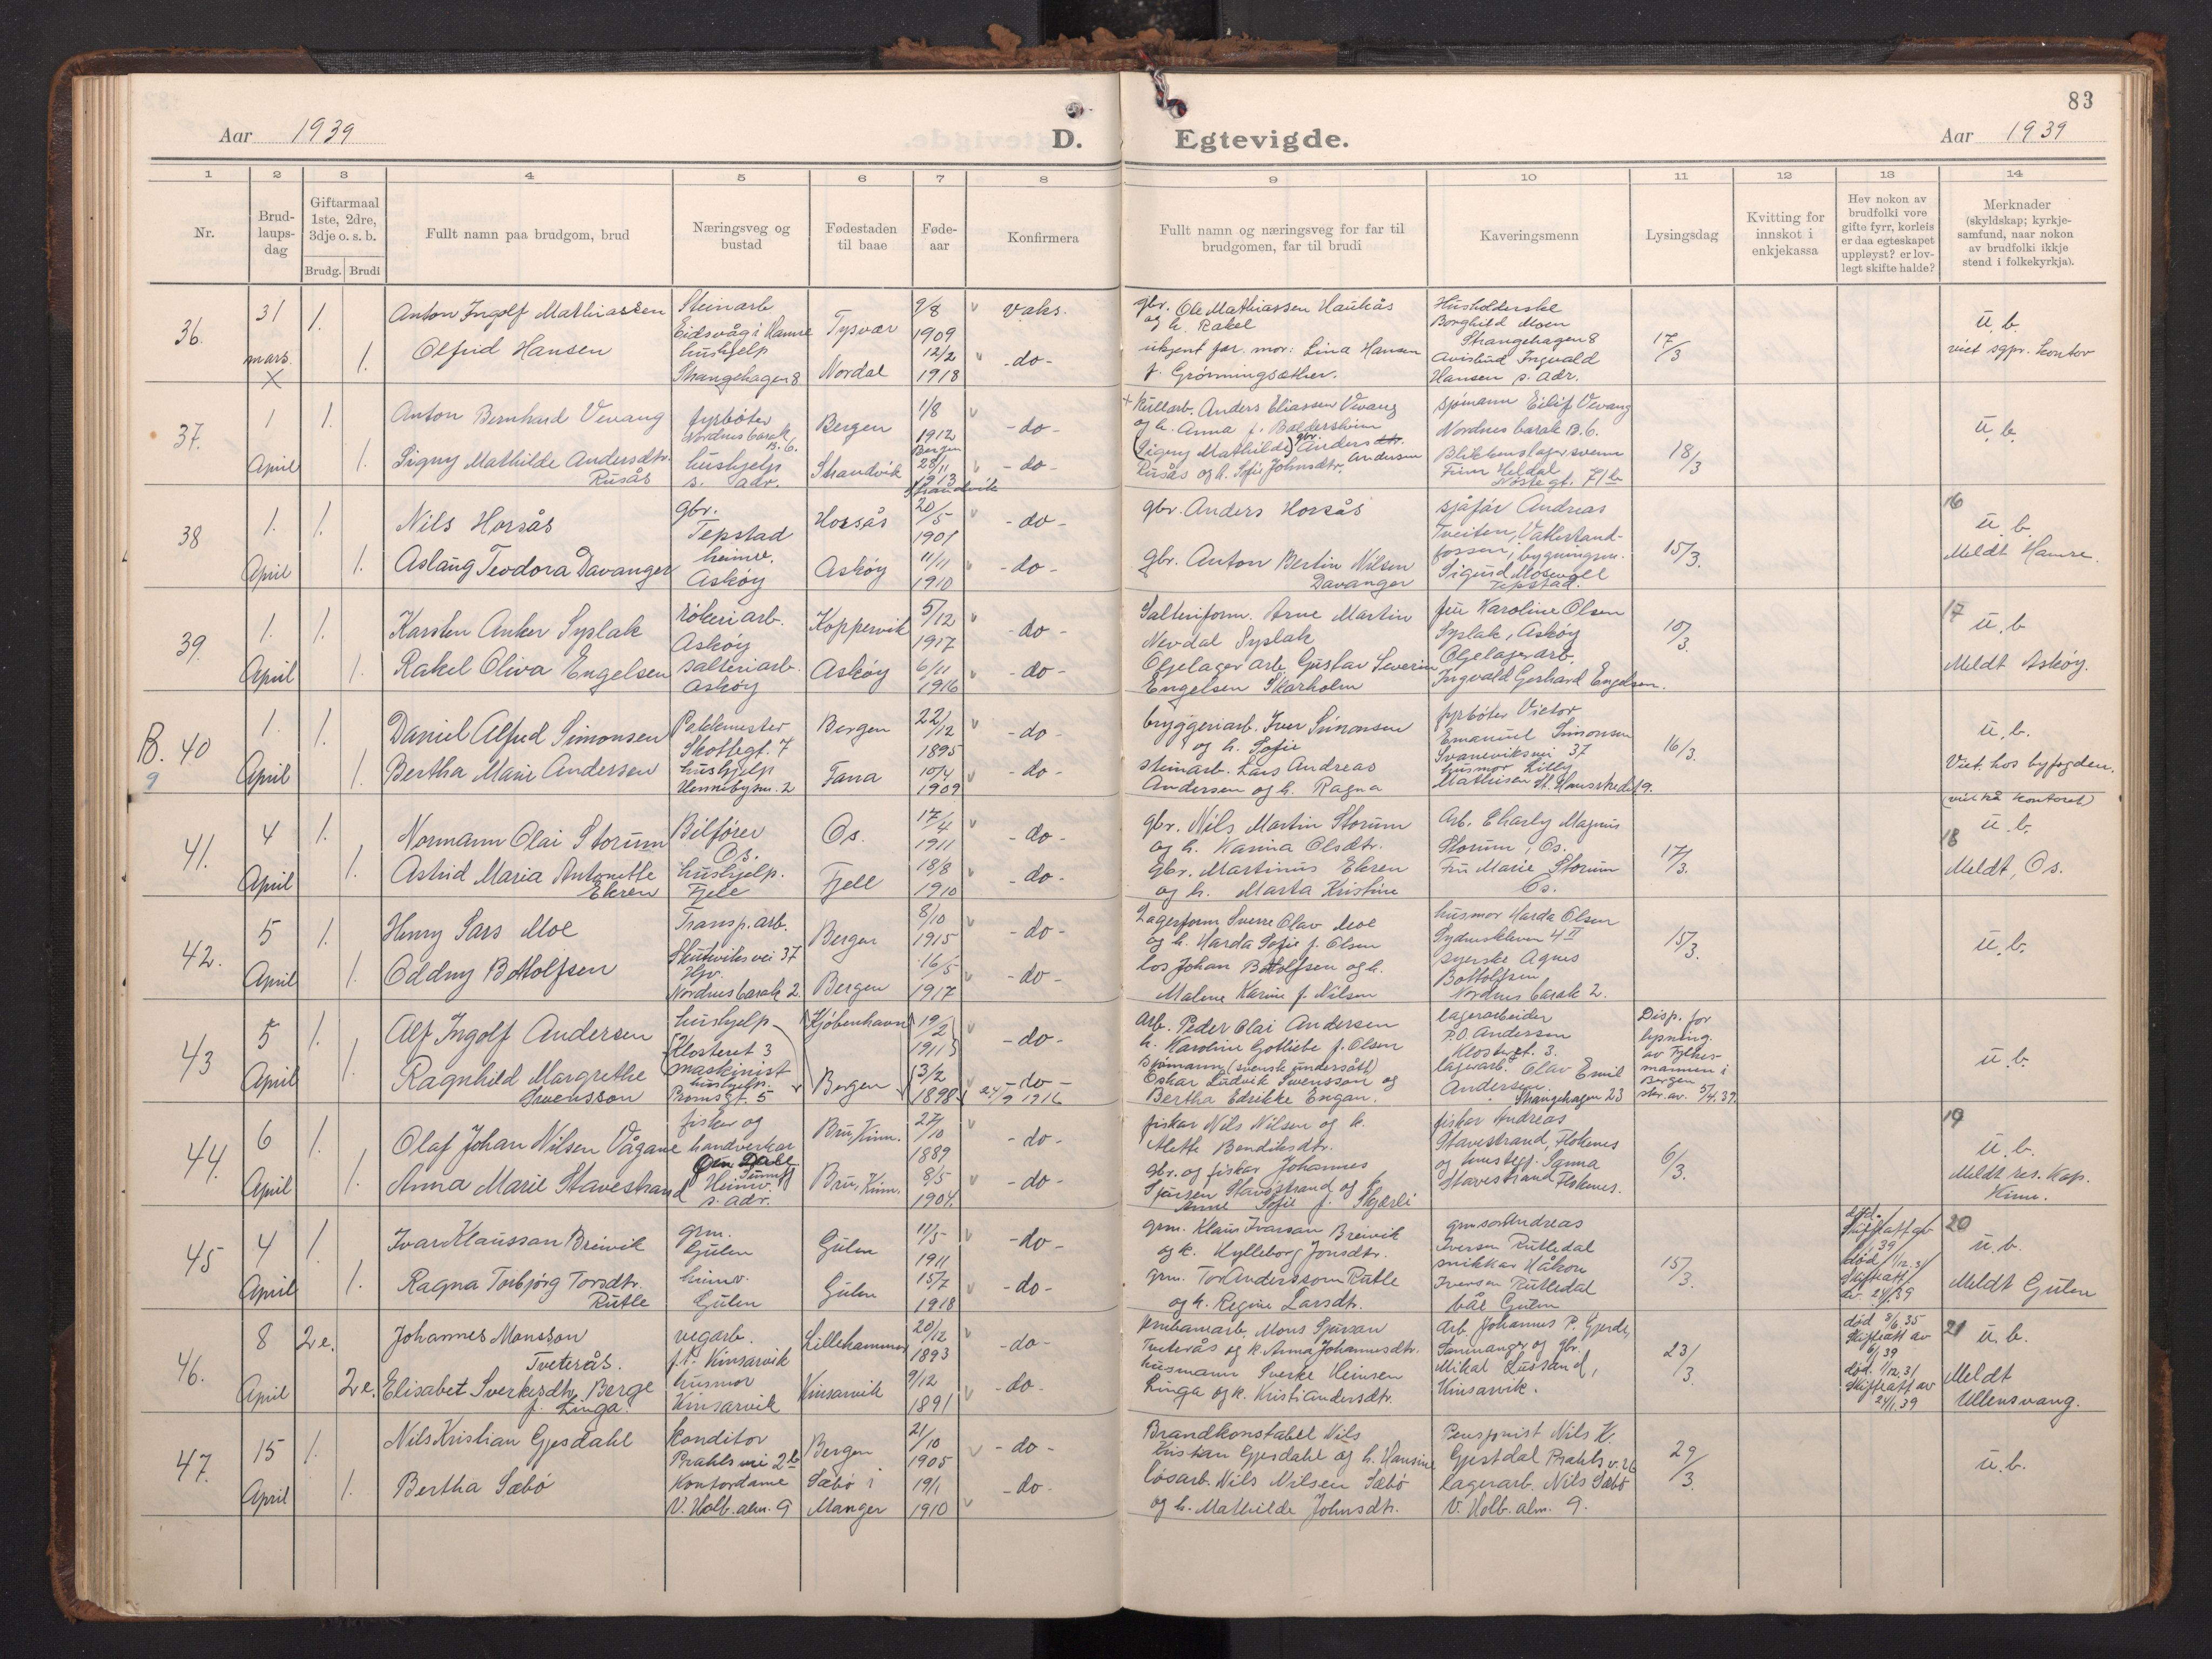 83
Aar 1939
D.
Egtevigde.
Aar 1939
1
2
3
4
5
6
7
8
9
10
11
12
13
14
Nr.
Brud-
laups-
dag
Giftarmaal
1ste, 2dre,
3dje o. s. b.
Brudg. Brudi
Fullt namn paa brudgom, brud
Næringsveg og
bustad
Fødestaden
til baae
Føde-
aar
Konfirmera
Fullt namn og næringsveg for far til
brudgomen, far til brudi
Kaveringsmenn
Lysingsdag
Kvitting for
innskot i
enkjekassa
Hev nokon av
brudfolki vore
gifte fyrr, korleis
er daa egteskapet
uppløyst? er lov-
legt skifte halde?
Merknader
(skyldskap; kyrkje-
samfund, naar nokon
av brudfolki ikkje
stend i folkekyrkja).
36.
31
mars
X
1.
1.
Anton Ingolf Mathiassen
Olfrid Hansen
Steinarb
Eidsvåg i Hamre
hushjelp
Strangehagen 8
Tysvær
Nordal
9/8
1909
12/2
1918
vaks.
- do -
gbr. Ole Mathiassen Haukås
og h. Rakel
ukjent far. mor: Lina Hansen
f. Grønningsæther.
Husholderske
Borghild Moen
Strangehagen 8
Ingvald
Hansen s. adr.
17/3
u. b.
viet sgpr. kontor
37.
1
April
1.
1.
Anton Bernhard Vevang
Signy Mathilde Andersdtr.
Rusås
fyrbøter
Nordnes barak
B. 6.
hushjelp
s. adr.
Bergen
Strandvik
1/8
1912
Bergen
28/11
1913
Strandvik
- do -
- do -
Kullarb. Anders Eliassen Vevang
og h. Anna f. Baldersheim
(Signy Mathilde) gbr. Anders dtr. Andersen
Rusås og h. Sofi Johnsdtr.
sjømann Eilif Vevang
Nordnes barak B. 6.
Blikkenslagersvenn
Finn Heldal
Nøstegt. 71 b
18/3
u. b.
38
1.
April
1.
1.
Nils Horsås
Aslaug Teodora Davanger
gbr.
Tepstad
heimv.
Askøy
Horsås
Askøy
20/5
1901
11/11
1910
- do -
- do -
gbr. Anders Horsås
gbr. Anton Bertin Nilsen
Davanger
sjåfør Andreas
Tveiten, Vatlestand-
fossen, bygningsm.
Sigurd Mosevoll
Tepstad.
15/3.
16
u. b.
Meldt Hamre.
39.
1.
April
1.
1.
Karsten Anker Syslak
Rakel Oliva Engelsen
røkeriarb.
Askøy
salteriarb.
Askøy
Koppervik
Askøy
5/12
1917
6/11
1916
- do -
- do -
Salteriform. Arne Martin
Nevdal Syslak
Oljelager arb. Gustav Severin
Engelsen Skarholm
fru Karoline Olsen
Syslak, Askøy
Oljelagerarb.
Ingvald Gerhard Engelsen.
10/3.
17
u. b
Meldt Askøy.
B. 40
9
1.
April
1.
1.
Daniel Alfred Simonsen
Bertha Marie Andersen
Pakkmester
Skottegt. 7
hushjelp
Hennebysm. 2
Bergen
Fana
22/12
1895
10/4
1909
- do -
- do -
bryggeriarb. Iver Simonsen
og h. Sofie
steinarb. Lars Andreas
Andersen og h. Ragna
fyrbøter Victor
Emanuel Simonsen
Svaneviksvei 37
husmor Lilly
Mathisen St. Hansstredet 9.
16/3.
u. b.
Viet hos byfogden.
41.
4
April
1.
1.
Normann Olai Storum
Astrid Maria Antonette
Ekren
Bilfører
Os.
hushjelp.
Fjell
Os.
Fjell
17/4
1911
18/8
1910
- do -
- do -
gbr. Nils Martin Storum
og h. Karina Olsdtr.
Gbr. Martinus Ekren
og h. Marta Kristine
Arb. Charly Magnus
Storum, Os.
Fru Marie Storum
Os.
17/3.
(viet på kontoret)
u. b.
18
Meldt, Os.
42.
5
April
1.
1.
Henry Sars Moe
Oddny Bottolfsen
Transp. arb.
Skuteviksvei 37
Hjv.
Nordnes barak 2.
Bergen
Bergen
8/10
1915
16/5
1917
- do -
- do -
Lagerform Sverre Olav Moe
og h. Harda Sofie f. Olsen
los Johan Bottolfsen og h.
Malene Karine f. Nilsen
husmor Harda Olsen
Sydneskleven 4 II
syerske Agnes
Bottolfsen
Nordnes barak 2.
15/3.
u. b.
43
5
April
1.
1.
Alf Ingolf Andersen
Ragnhild Margrethe
Svensson
hushjelp
Klosteret 3
maskinist
hushjelp.
Promsgt. 5
Kjøbenhavn
Bergen
19/2
1911
3/2
1898
- do -
- do -
24/9 1916
Arb. Peder Olai Andersen
h. Karoline Gotliebe f. Olsen
Sjømann (svensk undersått)
Oskar Ludvik Svensson og
Bertha Edrikke Engan.
lagerarbeider
P.O. Andersen
Klosteret. 3.
lagerarb. Olav Emil
Andersen
Strangehagen 23
Disp. for
lysning.
av Fylkes-
mannen i
Bergen
skr. av. 5/4.39.
u. b.
44.
6
April
1.
1.
Olaf Johan Nilsen Vågane
Anna Marie Stavestrand
fisker og
handverkar
Heimv.
s. adr.
Bru, Kinn.
Bru, Kinn.
27/10
1889
8/5
1904.
- do -
- do -
fiskar Nils Nilsen og k.
Alette Bendiksdtr.
gbr. og fiskar Johannes
Sjursen Stavøstrand og k
Anne Sofie f. Skjærli
fiskar Andreas
Stavestrand, Flokenes
og hustegj. Sanna
Stavestrand Flokenes.
6/3.
19
u. b.
Meldt res. Kap.
Kinn.
45
4
April
1.
1.
Ivar Klausson Breivik
Ragna Torbjørg Torsdtr.
Rutle
grm.
Gulen
heimv.
Gulen
Gulen
Gulen
11/5
1911
15/7
1918
- do -
- do -
grm. Klaus Ivarson Breivik
og k. Hylleborg Jonsdtr.
grm. Tor Andersson Rutle
og h. Regine Larsdtr.
grmson Andreas
Iversen Rutledal
snikkar Håkon
Iversen Rutledal
båe Gulen
15/3.
20
u. b.
Meldt Gulen
46.
8
April
2 e.
2 e.
Johannes Monsson
Tveterås.
Elisabet Sverkesdtr. Berge
f. Linga.
vegarb.
f. t. Kinsarvik
husmor
Kinsarvik
Lillehammer
Kinsarvik
20/12
1893
9/12
1891
- do -
- do -
Mons Sjursan
Tveterås og k. Anna Johannesdtr.
husmann Sverke Heinsen
Linga og k. Kristi Andersdtr.
Arb. Johannes P. Gjerde,
Samnanger og gbr.
Mikal Lussand,
Kinsarvik.
23/3
død 8/6.35
Skifteatt av
6/39
død. 1/12.31
Skifteatt av
24/1.39
21 u. b.
Meldt
Ullensvang.
47.
15
April
1.
1.
Nils Kristian Gjesdahl
Bertha Sæbø
konditor
Prahls vei 2 b
Kontordame
V. Holb. alm. 9
Bergen
Sæbø i
Manger
21/10
1905
19/1
1910
- do -
- do -
Brandkonstabel Nils
Kristian Gjesdahl og h. Hansine
løsarb. Nils Nilsen Sæbø
og h. Mathilde Johnsdtr.
Pensjonist Nils K.
Gjestdal Prahls v. 2b
Lagerarb. Nils Sæbø
V. Holb. alm. 9.
29/3.
u. b.